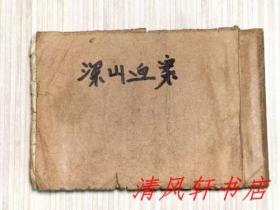 深山血案
清风轩书店